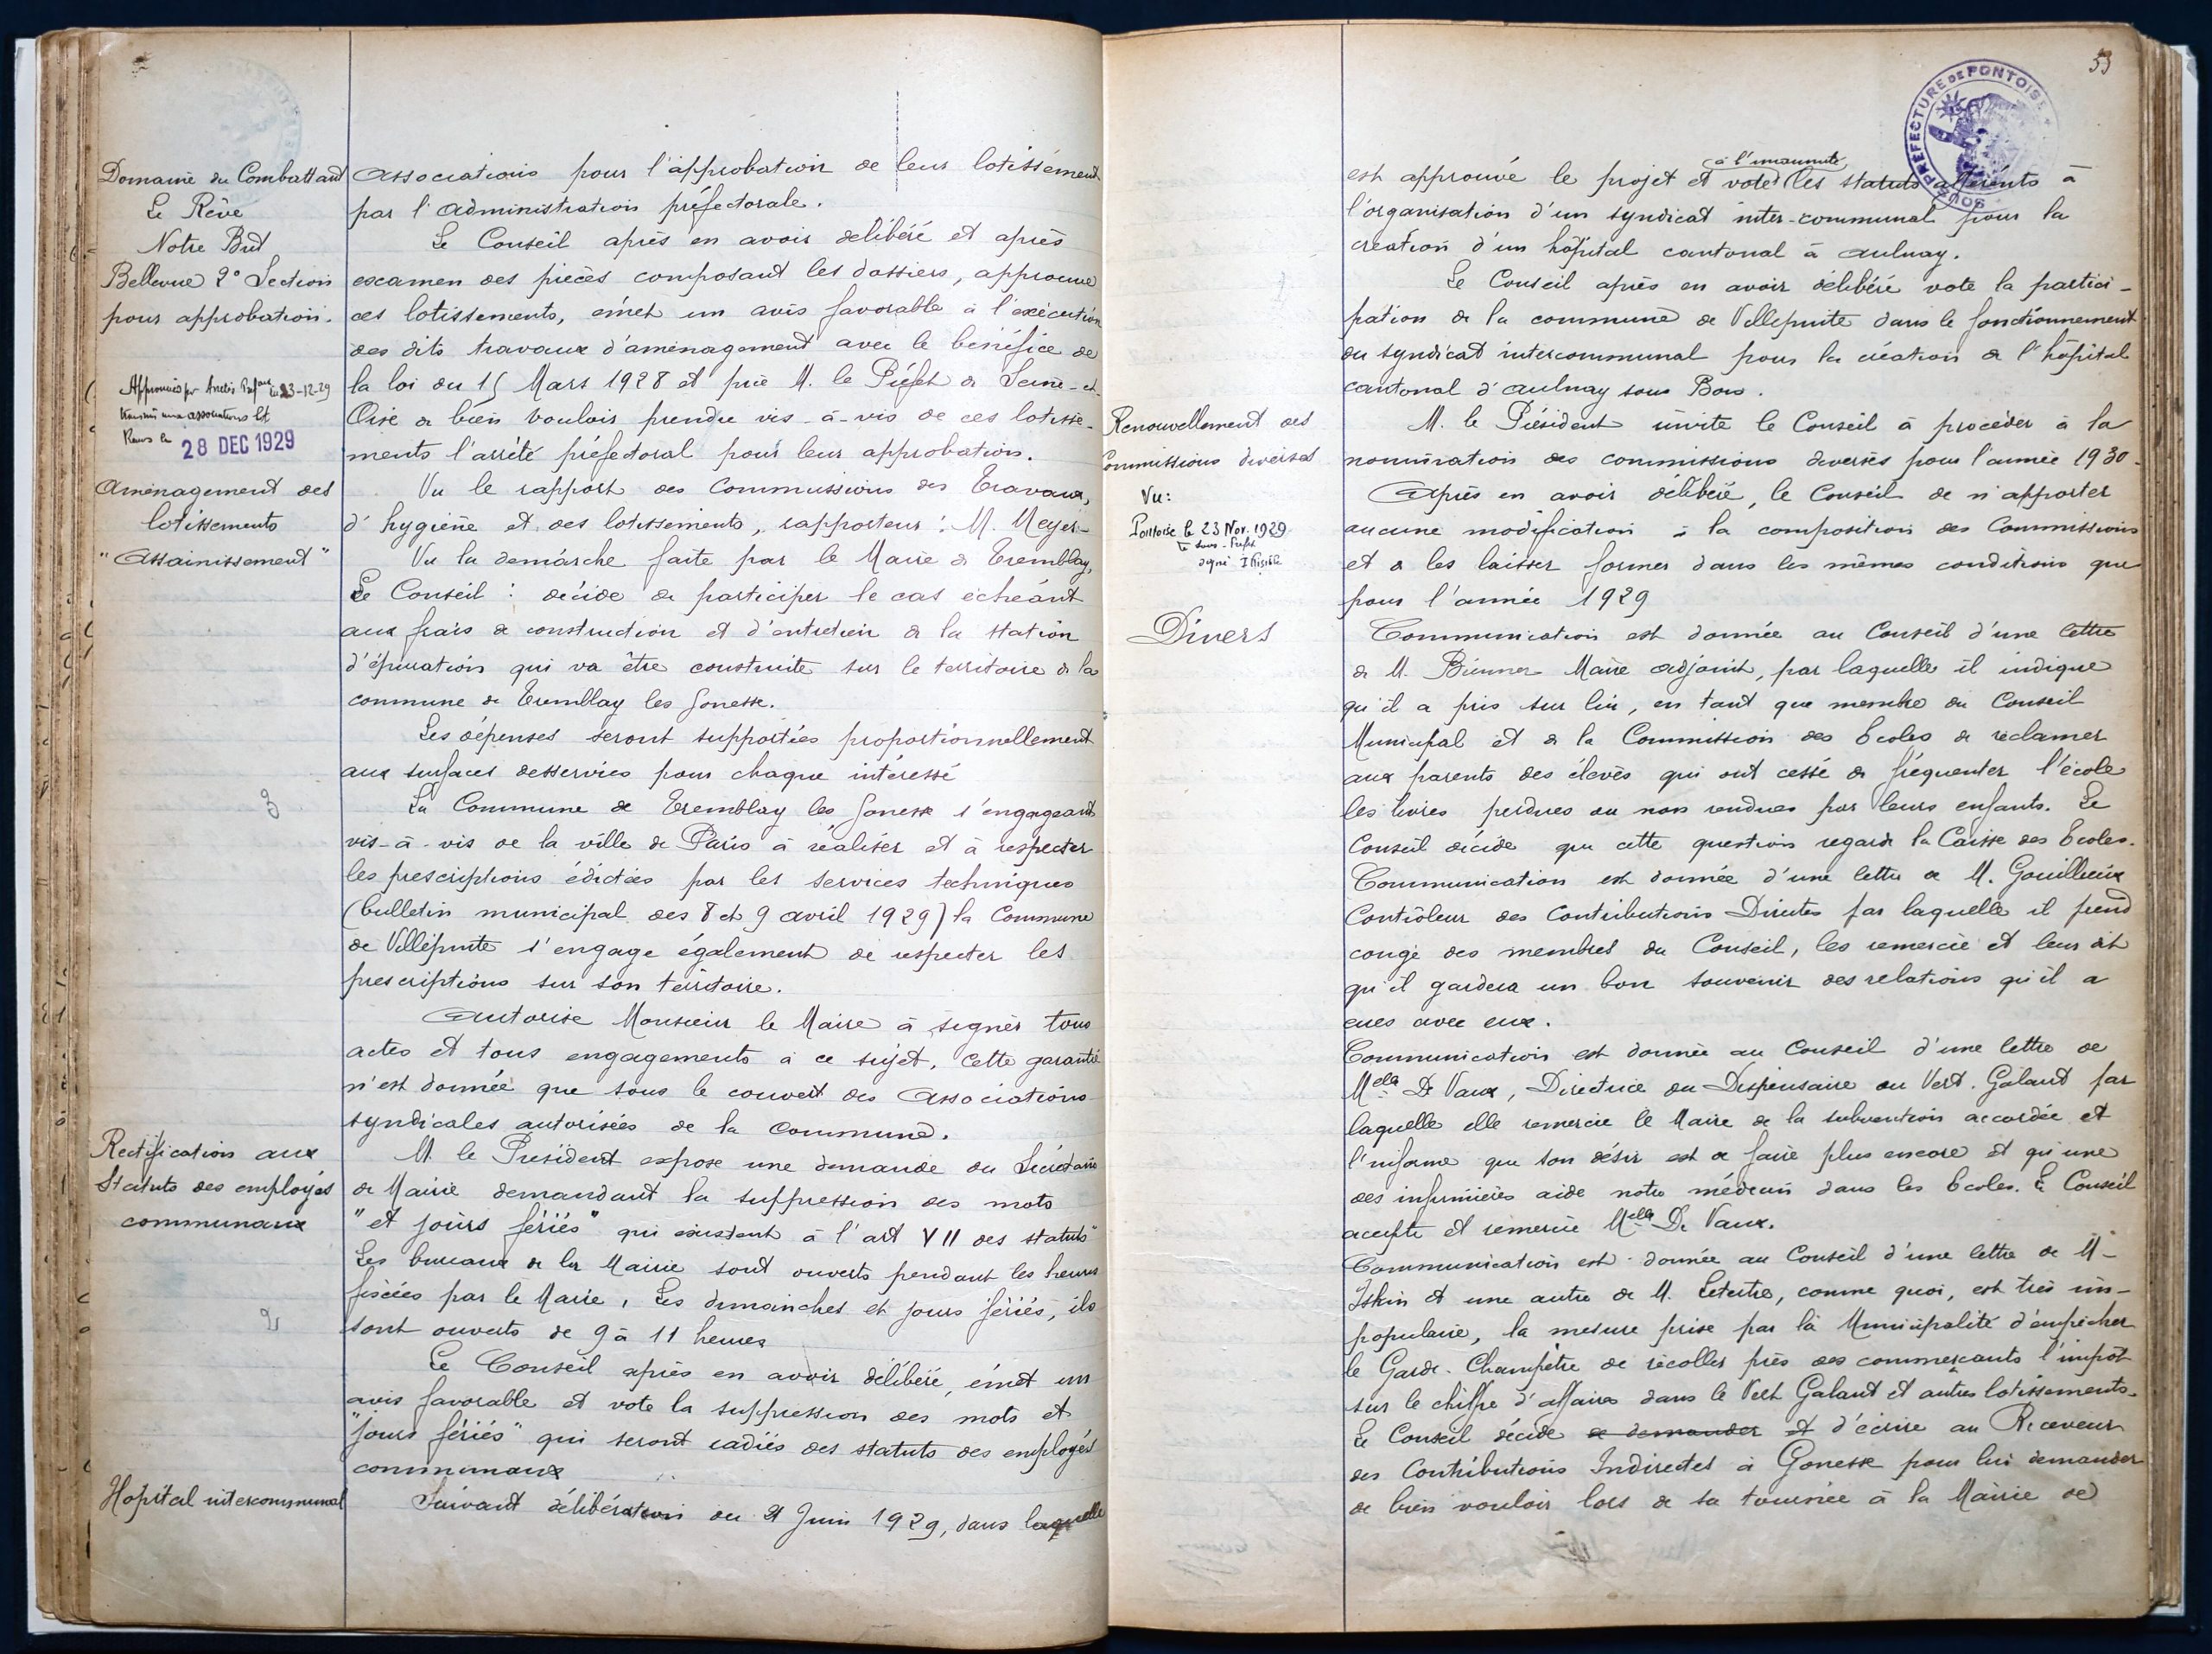 Domaine du Combattant
Le Rêve
Notre But
Bellevue 2° Section
pour approbation.
Approuvés par Arrêtés Préf aux du 23-12-29
transmis aux associations lot
Reçus le
28 DEC 1929
Aménagement des
lotissements
"Assainissement"
3
Rectification aux
Statuts des employés
communaux
2
Hopital intercommunal
associations pour l'approbation de leur lotissement
par l'administration préfectorale.
Le Conseil après en avoir délibéré et après
examen des pièces composant les dossiers, approuve
ces lotissements, émet un avis favorable à l'exécution
des dits travaux d'aménagement avec le bénéfice de
la loi du 15 Mars 1928 et prie M. le Préfet de Seine-et-
Oise de bien vouloir prendre vis-à-vis de ces lotisse-
ments l'arrêté préfectoral pour leur approbation.
Vu le rapport des Commissions des Travaux,
d'hygiène et des lotissements, rapporteur : M. Meyer-
Vu la démarche faite par le Maire de Tremblay,
Le Conseil : décide de participer le cas échéant
aux frais de construction et d'entretien de la station
d'épuration qui va être construite sur le territoire de la
commune de Tremblay les Gonesse.
Les dépenses seront supportées proportionnellement
aux surfaces desservies pour chaque intéressé
La Commune de Tremblay les Gonesse s'engageant
vis-à-vis de la ville de Paris à réaliser et à respecter
les prescriptions édictées par les services techniques
(bulletin municipal des 8 et 9 avril 1929) la Commune
de Villepinte s'engage également de respecter les
prescriptions sur son territoire.
Autorise Monsieur le Maire à signer tous
actes et tous engagements à ce sujet. Cette garantie
n'est donnée que sous le couvert des Associations
syndicales autorisées de la commune.
M. le Président expose une demande du Secrétaire
de Mairie demandant la suppression des mots
"et jours fériés" qui existent à l'art VII des statuts"
Les bureaux de la Mairie sont ouverts pendant les heures
fixées par le Maire, Les dimanches et jours fériés, ils
sont ouverts de 9 à 11 heures
Le Conseil après en avoir délibéré, émet un
avis favorable et vote la suppression des mots et
"jours fériés" qui seront radiés des statuts des employés
communaux
Suivant délibération du 21 Juin 1929, dans laquelle
53
SOUS-PREFECTURE DE PONTOISE
Renouvellement des
Commissions diverses
Vu:
Pontoise le 23 Nov. 1929
Le Sous-Préfet
signé Illisible
Divers
à l'unanimité
est approuvé le projet et votés les statuts afférents à
l'organisation d'un syndicat inter-communal pour la
création d'un hôpital cantonal à aulnay.
Le Conseil après en avoir délibéré vote la partici-
pation de la commune de Villepinte dans le fonctionnement
du syndicat intercommunal pour la création de l'hôpital
cantonal d'aulnay sous Bois.
M. le Président invite le Conseil à procéder à la
nomination des commissions diverses pour l'année 1930.
Après en avoir délibéré, le Conseil de n'apporter
aucune modification à la composition des Commissions
et de les laisser former dans les mêmes conditions que
pour l'année 1929
Communication est donnée au Conseil d'une lettre
de M. Maire adjoint, par laquelle il indique
qu'il a pris sur lui, en tant que membre du Conseil
Municipal et de la Commission des Ecoles de réclamer
aux parents des élèves qui ont cessé de fréquenter l'école
les livres perdues ou non rendues par leurs enfants. Le
Conseil décide que cette question regarde la Caisse des Ecoles.
Communication est donnée d'une lettre de M. Gouillieux
Contrôleur des Contributions Directes par laquelle il prend
congé des membres du Conseil, les remercie et leur dit
qu'il gardera un bon souvenir des relations qu'il a
eues avec eux.
Communication est donnée au Conseil d'une lettre de
Melle De Vaux, Directrice du Dispensaire du Vert-Galant par
laquelle elle remercie le Maire de la subvention accordée et
l'informe que son désir est de faire plus encore et qu'une
des infirmières aide notre médecin dans les Ecoles. Le Conseil
accepte et remercie Melle De Vaux.
Communication est donnée au Conseil d'une lettre de M-
Iskin et une autre de M. Letertre, comme quoi, est très im-
populaire, la mesure prise par la Municipalité d'empêcher
le Garde-Champêtre de récolter près des commerçants l'impôt
sur le chiffre d'affaires dans le Vert Galant et autres lotissements.
Le Conseil décide de demander et d'écrire au Receveur
des Contributions Indirectes à Gonesse pour lui demander
de bien vouloir lors de sa tournée à la Mairie de